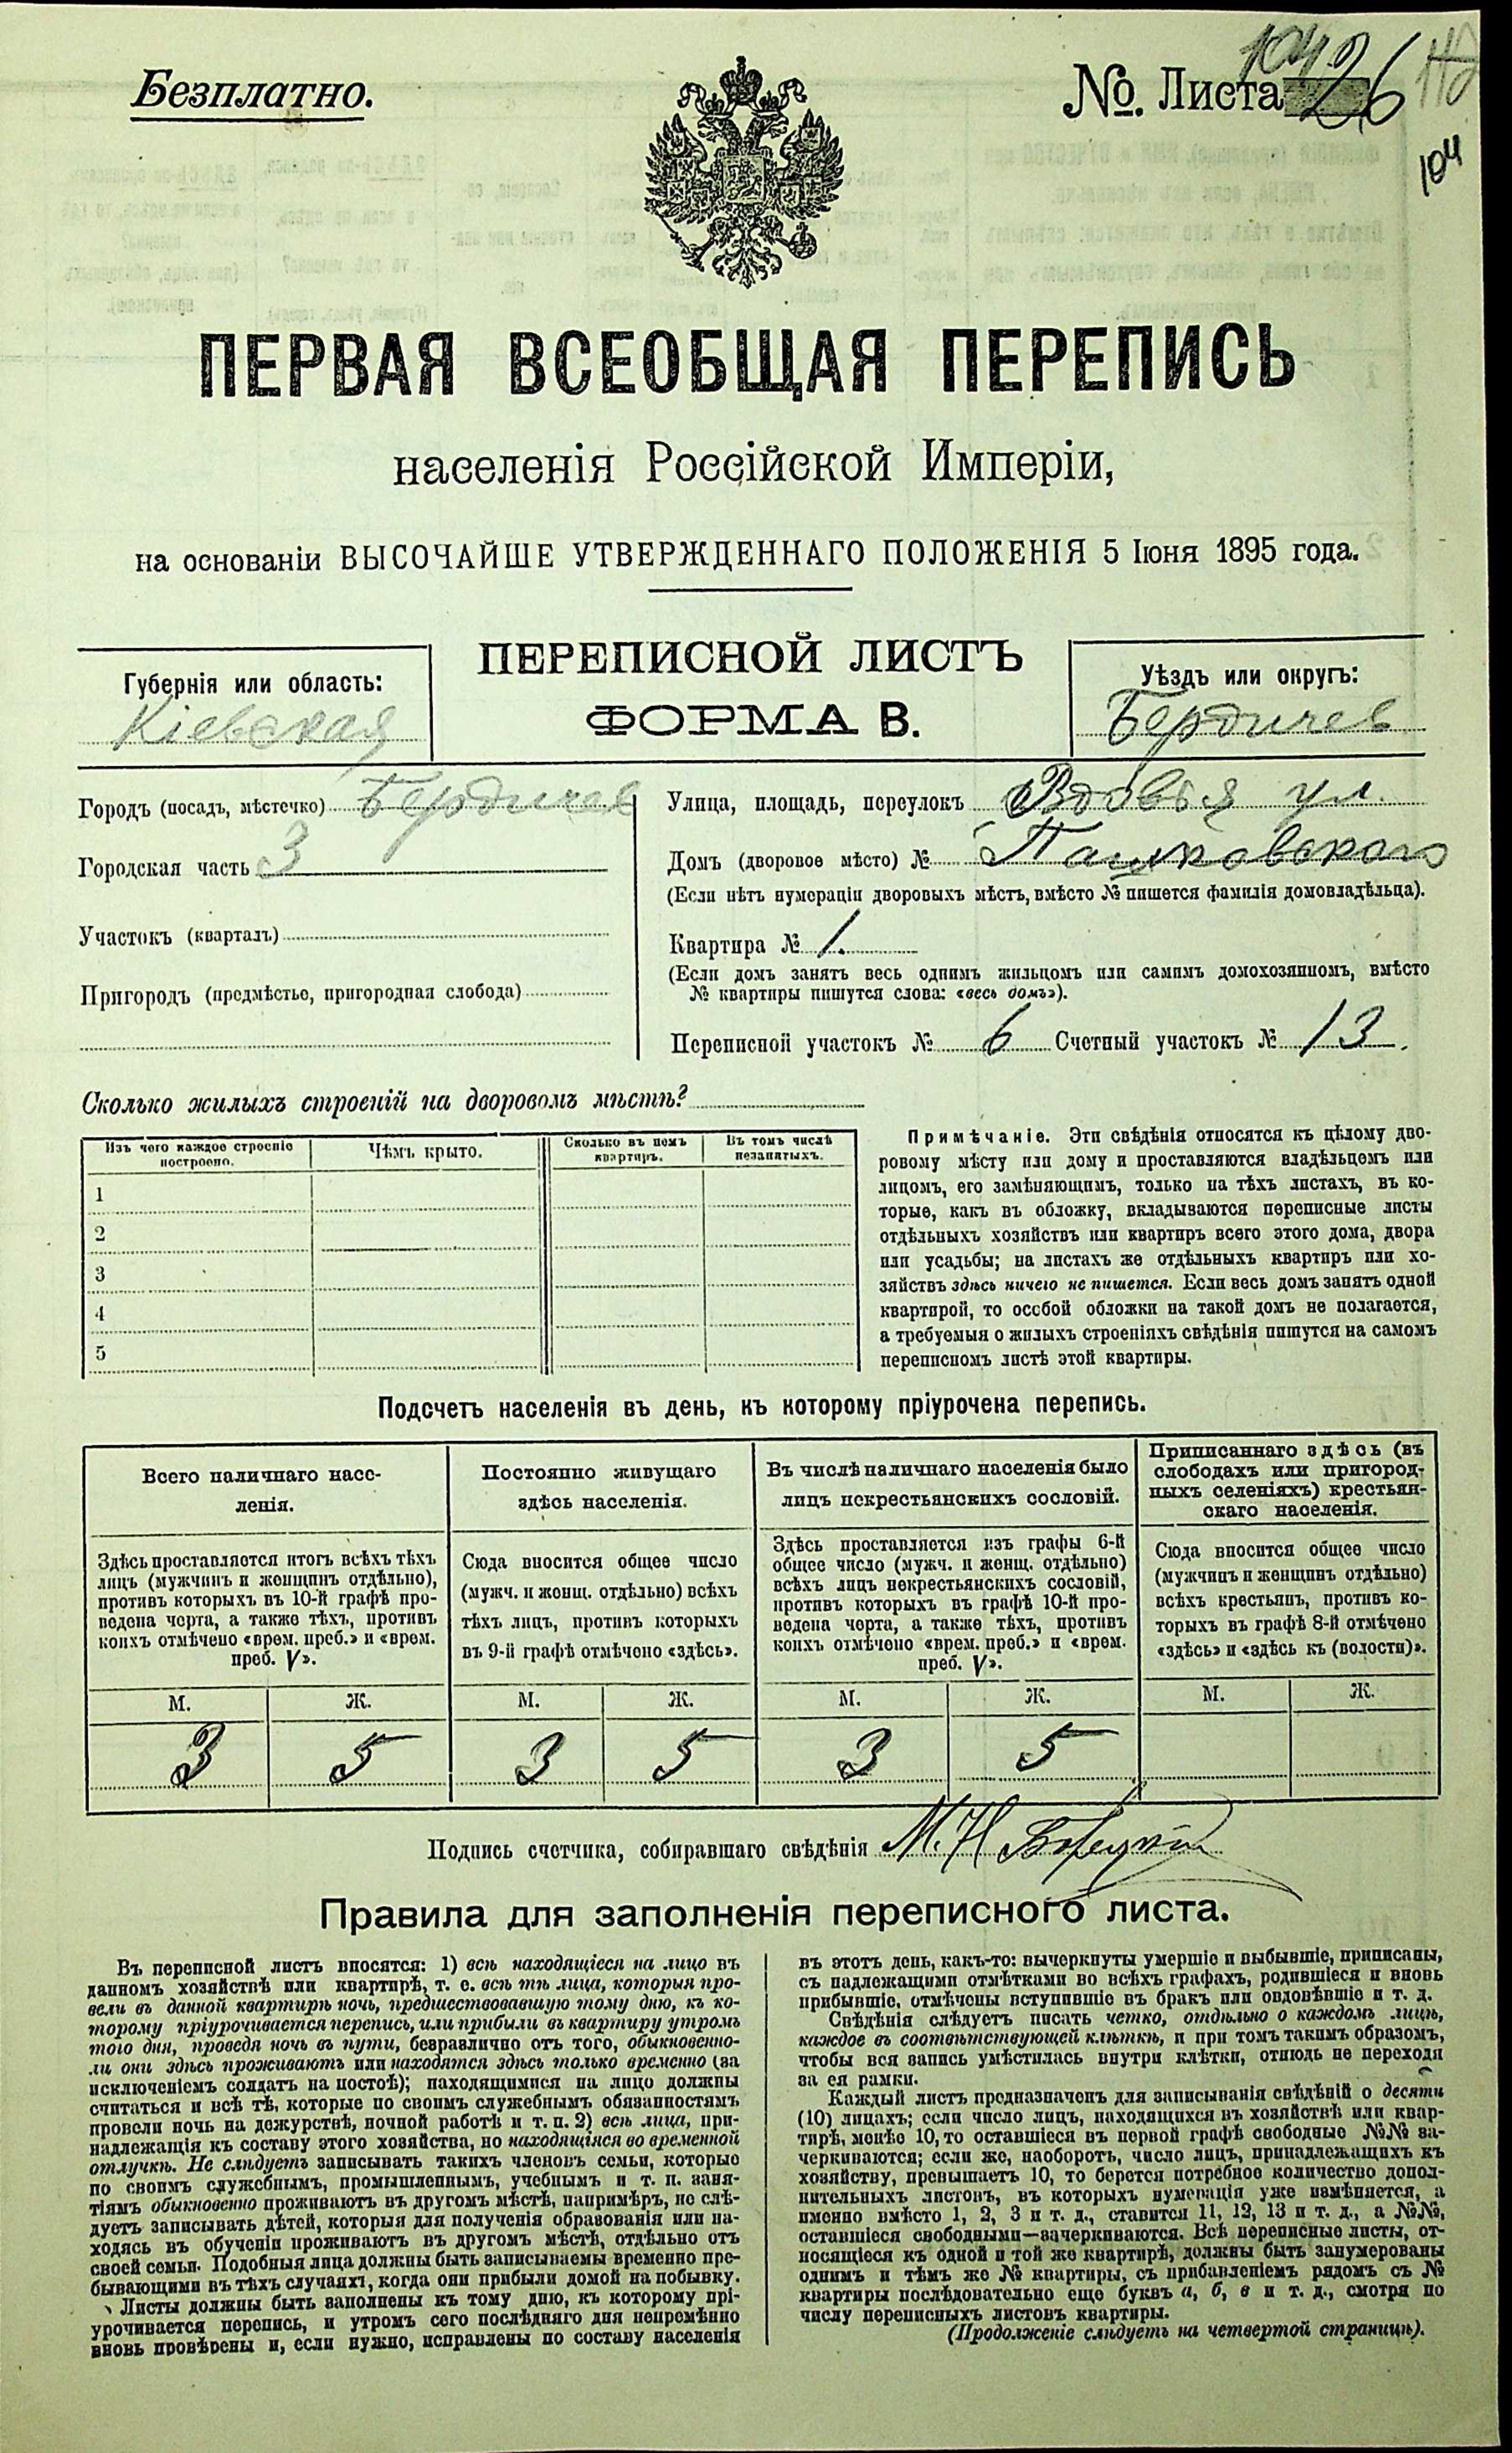 Безплатно.
№. Листа 26
104
ПЕРВАЯ ВСЕОБЩАЯ ПЕРЕПИСЬ
населенія Россійской Имперіи,
на основаніи ВЫСОЧАЙШЕ УТВЕРЖДЕННАГО ПОЛОЖЕНІЯ 5 Іюня 1895 года.
ПЕРЕПИСНОЙ ЛИСТЪ
ФОРМА В.
Губернія или область:
Кіевская
Уѣздъ или округъ:
Бердичев
Городъ (посадъ, мѣстечко) Бердичев
Городская часть 3
Участокъ (кварталъ)
Пригородъ (предмѣстье, пригородная слобода)
Улица, площадь, переулокъ Вдовья ул.
Домъ (дворовое мѣсто) № Пашковского
(Если нѣтъ нумераціи дворовыхъ мѣстъ, вмѣсто № пишется фамилія домовладѣльца).
Квартира № 1.
(Если домъ занятъ весь однимъ жильцомъ или самимъ домохозяиномъ, вмѣсто
№ квартиры пишутся слова: «весь домъ»).
Переписной участокъ № 6 Счетный участокъ № 13.
Сколько жилыхъ строеній на дворовомъ мѣстѣ?
Изъ чего каждое строеніе
построено.
Чѣмъ крыто.
Сколько въ немъ
квартиръ.
Въ томъ числѣ
незанятыхъ.
1
2
3
4
5
Примѣчаніе. Эти свѣдѣнія относятся къ цѣлому дво-
ровому мѣсту или дому и проставляются владѣльцемъ или
лицомъ, его замѣняющимъ, только на тѣхъ листахъ, въ ко-
торые, какъ въ обложку, вкладываются переписные листы
отдѣльныхъ хозяйствъ или квартиръ всего этого дома, двора
или усадьбы; на листахъ же отдѣльныхъ квартиръ или хо-
зяйствъ здѣсь ничего не пишется. Если весь домъ занятъ одной
квартирой, то особой обложки на такой домъ не полагается,
а требуемыя о жилыхъ строеніяхъ свѣдѣнія пишутся на самомъ
переписномъ листѣ этой квартиры.
Подсчетъ населенія въ день, къ которому пріурочена перепись.
Всего наличнаго насе-
ленія.
Постоянно живущаго
здѣсь населенія.
Въ числѣ наличнаго населенія было
лицъ некрестьянскихъ сословій.
Приписаннаго здѣсь (въ
слободахъ или пригород-
ныхъ селеніяхъ) крестьян-
скаго населенія.
Здѣсь проставляется итогъ всѣхъ тѣхъ
лицъ (мужчинъ и женщинъ отдѣльно),
противъ которыхъ въ 10-й графѣ про-
ведена черта, а также тѣхъ, противъ
коихъ отмѣчено «врем. преб.» и «врем.
преб. V».
Сюда вносится общее число
(мужч. и женщ. отдѣльно) всѣхъ
тѣхъ лицъ, противъ которыхъ
въ 9-й графѣ отмѣчено «здѣсь».
Здѣсь проставляется изъ графы 6-й
общее число (мужч. и женщ. отдѣльно)
всѣхъ лицъ некрестьянскихъ сословій,
противъ которыхъ въ графѣ 10-й про-
ведена черта, а также тѣхъ, противъ
коихъ отмѣчено «врем. преб.» и «врем.
преб. V».
Сюда вносится общее число
(мужчинъ и женщинъ отдѣльно)
всѣхъ крестьянъ, противъ ко-
торыхъ въ графѣ 8-й отмѣчено
«здѣсь» и «здѣсь къ (волости)».
М. Ж. М. Ж. М. Ж. М. Ж.
3 5 3 5 3 5
Подпись счетчика, собиравшаго свѣдѣнія М. Н
Правила для заполненія переписного листа.
Въ переписной листъ вносятся: 1) всѣ находящіеся на лицо въ
данномъ хозяйствѣ или квартирѣ, т. е. всѣ тѣ лица, которыя про-
вели въ данной квартирѣ ночь, предшествовавшую тому дню, къ ко-
торому пріурочивается перепись, или прибыли въ квартиру утромъ
того дня, проведя ночь въ пути, безразлично отъ того, обыкновенно-
ли они здѣсь проживаютъ или находятся здѣсь только временно (за
исключеніемъ солдатъ на постоѣ); находящимися на лицо должны
считаться и всѣ тѣ, которые по своимъ служебнымъ обязанностямъ
провели ночь на дежурствѣ, ночной работѣ и т. п. 2) всѣ лица, при-
надлежащія къ составу этого хозяйства, но находящіяся во временной
отлучкѣ. Не слѣдуетъ записывать такихъ членовъ семьи, которые
по своимъ служебнымъ, промышленнымъ, учебнымъ и т. п. заня-
тіямъ обыкновенно проживаютъ въ другомъ мѣстѣ, напримѣръ, не слѣ-
дуетъ записывать дѣтей, которыя для полученія образованія или на-
ходясь въ обученіи проживаютъ въ другомъ мѣстѣ, отдѣльно отъ
своей семьи. Подобныя лица должны быть записываемы временно пре-
бывающими въ тѣхъ случаяхъ, когда они прибыли домой на побывку.
Листы должны быть заполнены къ тому дню, къ которому прі-
урочивается перепись, и утромъ сего послѣдняго дня непремѣнно
вновь провѣрены и, если нужно, исправлены по составу населенія
въ этотъ день, какъ-то: вычеркнуты умершіе и выбывшіе, приписаны,
съ надлежащими отмѣтками во всѣхъ графахъ, родившіеся и вновь
прибывшіе, отмѣчены вступившіе въ бракъ или овдовѣвшіе и т. д.
Свѣдѣнія слѣдуетъ писать четко, отдѣльно о каждомъ лицѣ,
каждое въ соотвѣтствующей клѣткѣ, и при томъ такимъ образомъ,
чтобы вся запись умѣстилась внутри клѣтки, отнюдь не переходя
за ея рамки.
Каждый листъ предназначенъ для записыванія свѣдѣній о десяти
(10) лицахъ; если число лицъ, находящихся въ хозяйствѣ или квар-
тирѣ, менѣе 10, то оставшіеся въ первой графѣ свободные №№ за-
черкиваются; если же, наоборотъ, число лицъ, принадлежащихъ къ
хозяйству, превышаетъ 10, то берется потребное количество допол-
нительныхъ листовъ, въ которыхъ нумерація уже измѣняется, а
именно вмѣсто 1, 2, 3 и т. д., ставится 11, 12, 13 и т. д., а №№,
оставшіеся свободными—зачеркиваются. Всѣ переписные листы, от-
носящіеся къ одной и той же квартирѣ, должны быть занумерованы
однимъ и тѣмъ же № квартиры, съ прибавленіемъ рядомъ съ №
квартиры послѣдовательно еще буквъ а, б, в и т. д., смотря по
числу переписныхъ листовъ квартиры.
(Продолженіе слѣдуетъ на четвертой страницѣ).